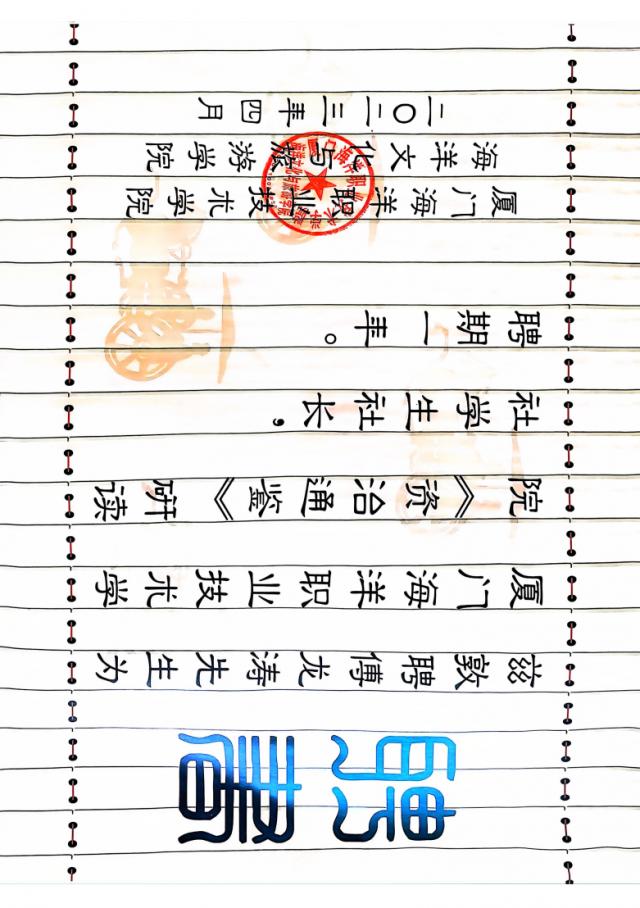 聘書
兹敦聘傅龙涛先生为
厦门海洋职业技术学
院《资治通鉴》研读
社学生社长，
聘期一年。
厦门海洋职业技术学院
海洋文化与旅游学院
二〇二三年四月